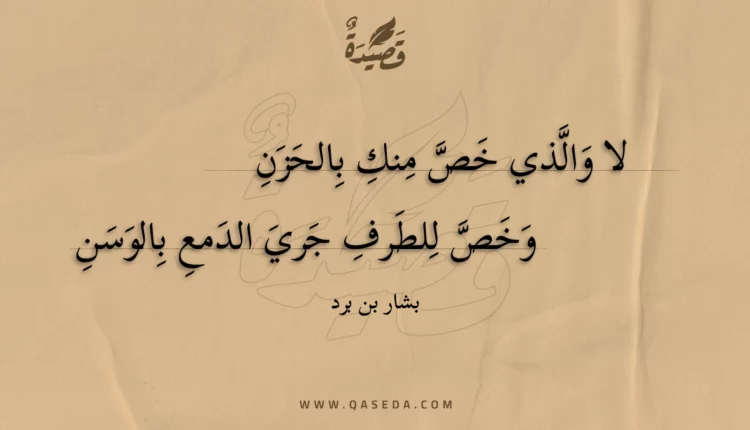 قَصِيدَةٌ
لا وَالَّذي خَصَّ مِنكِ بِالحَزَنِ
وَخَصَّ لِلطَرفِ جَريَ الدَمعِ بِالوَسَنِ
بشار بن برد
WWW.QASEDA.COM